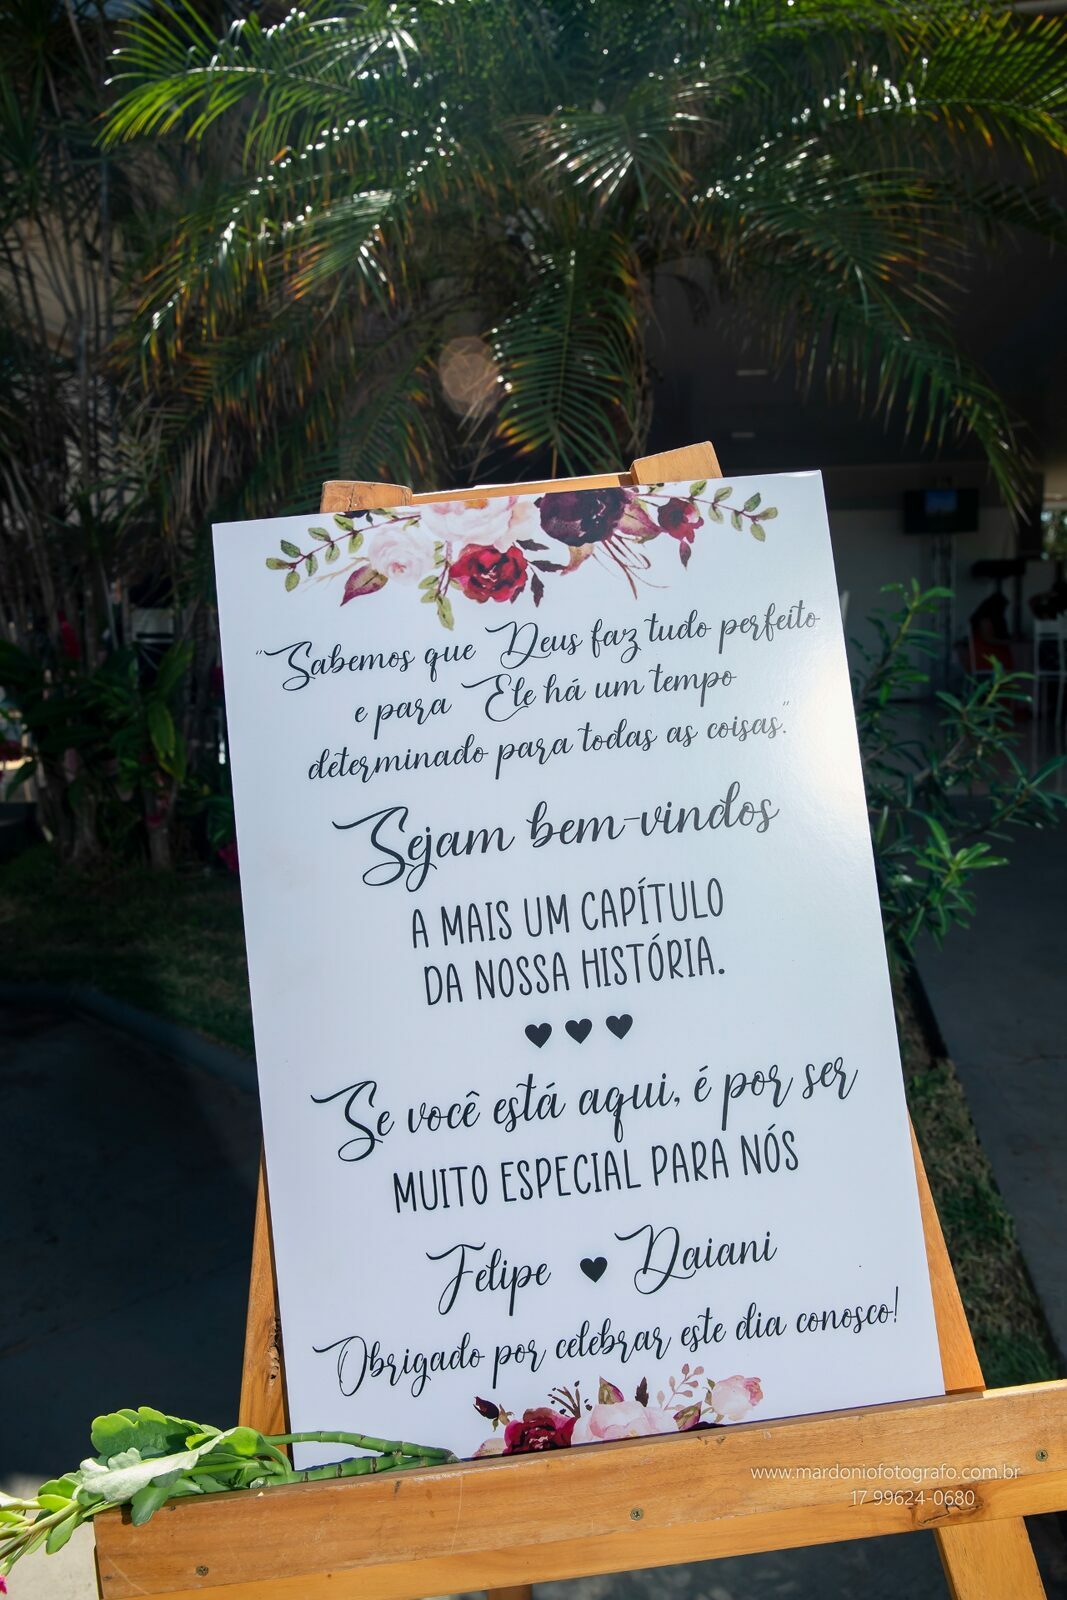 "Sabemos que Deus faz tudo perfeito
e para Ele há um tempo
determinado para todas as coisas."
Sejam bem-vindos
A MAIS UM CAPÍTULO
DA NOSSA HISTÓRIA.
Se você está aqui, é por ser
MUITO ESPECIAL PARA NÓS
Felipe ♥ Daiani
Obrigado por celebrar este dia conosco!
www.mardoniofotografo.com.br
17 99624-0680